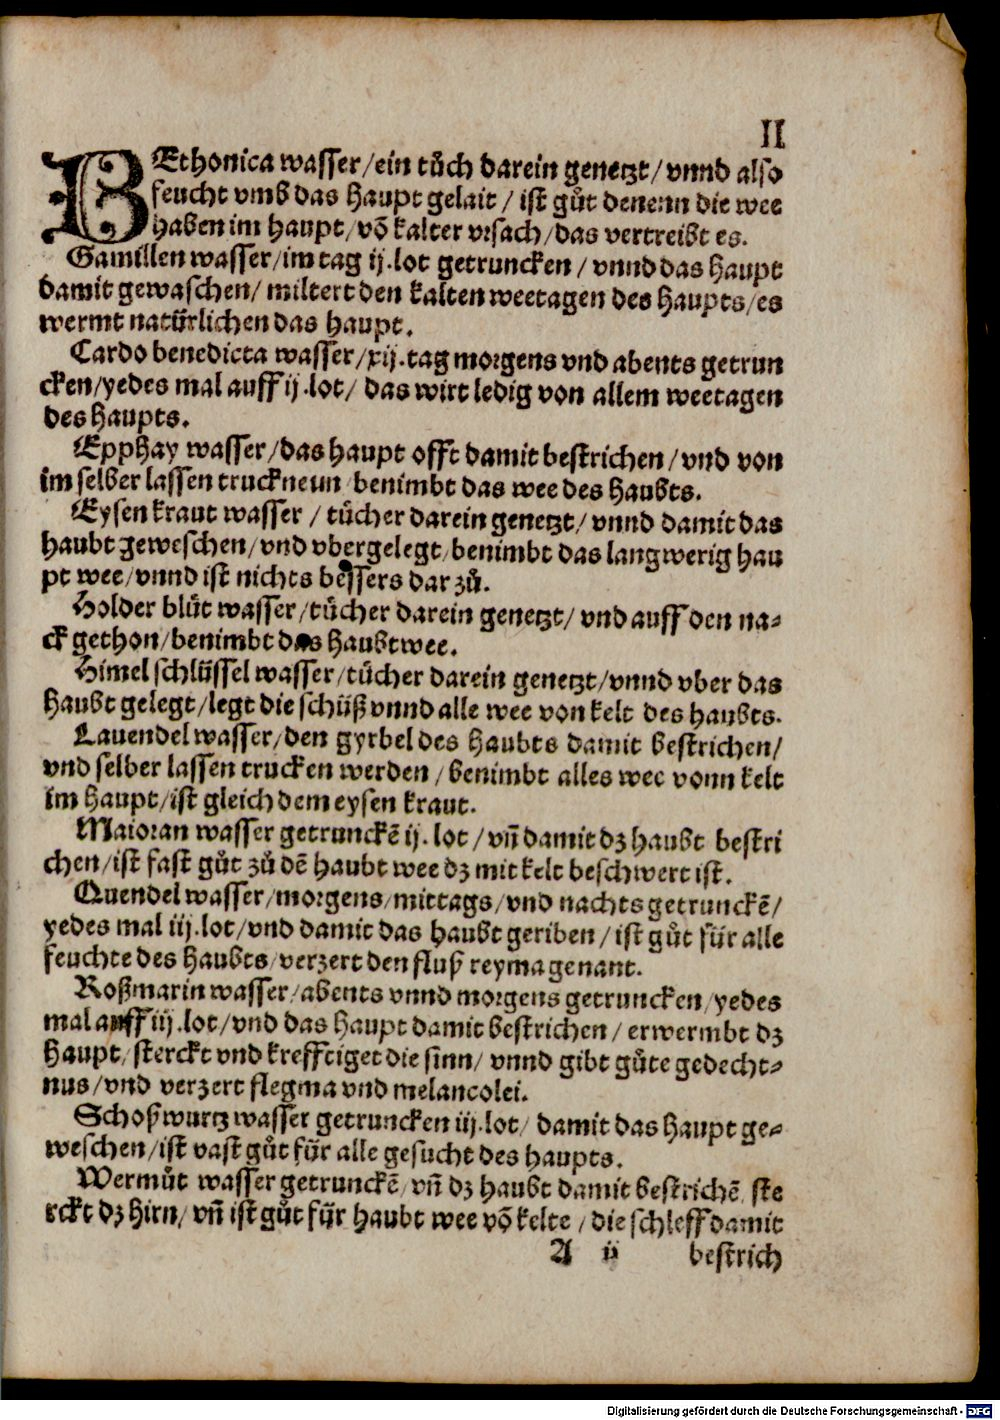 II
BEthonica wasser/ein tůch darein genetzt/ vnnd also
feucht vmb das haupt gelait / ist gůt denenn die wee
haben im haupt/võ kalter vrsach/das vertreibt es.
Gamillen wasser/im tag ij.lot getruncken / vnnd das haupt
damit gewaschen/ miltert den kalten weetagen des haupts/es
wermt natürlichen das haupt.
Cardo benedicta wasser/xij.tag morgens vnd abents getrun
cken/yedes mal auff ij.lot/ das wirt ledig von allem weetagen
des haupts.
Epphay wasser/das haupt offt damit bestrichen/vnd von
im selber lassen truckneun/benimbt das wee des haubts.
Eysen kraut wasser / tücher darein genetzt/ vnnd damit das
haubt geweschen/vnd vbergelegt/benimbt das langwerig hau
pt wee/vnnd ist nichts bessers dar zů.
Holder blůt wasser/tücher darein genetzt/ vnd auff den na-
ck gethon/benimbt das haubtwee.
Himel schlüssel wasser/tücher darein genetzt/vnnd vber das
haubt gelegt/legt die schüß vnnd alle wee von kelt des haubts.
Lauendel wasser/den gyrbel des haubts damit bestrichen/
vnd selber lassen trucken werden/benimbt alles wee vonn kelt
im haupt/ist gleich dem eysen kraut.
Maioran wasser getrunckẽ ij.lot/vñ damit dz haubt bestri
chen/ist fast gůt zů dẽ haubt wee dz mit kelt beschwert ist.
Quendel wasser/morgens/mittags/vnd nachts getrunckẽ/
yedes mal iij.lot/vnd damit das haubt geriben/ist gůt für alle
feuchte des haubts/verzert den fluß reyma genant.
Roßmarin wasser/abents vnnd morgens getruncken/yedes
mal auff iij.lot/vnd das haupt damit bestrichen/ erwermbt dz
haupt/sterckt vnd krefftiget die sinn/ vnnd gibt gůte gedecht-
nus/vnd verzert flegma vnd melancolei.
Schoßwurtz wasser getruncken iij.lot/ damit das haupt ge-
weschen/ist vast gůt für alle gesucht des haupts.
Wermůt wasser getrunckẽ/vñ dz haubt damit bestrichẽ ste
rckt dz hirn/vñ ist gůt für haubt wee võ kelte/die schleff damit
A ij bestrich
Digitalisierung gefördert durch die Deutsche Forschungsgemeinschaft - DFG